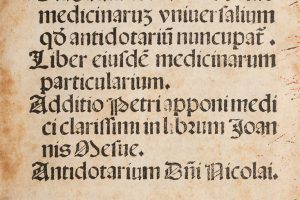 medicinaruꝫ vniuersalium
qď antidotariū nuncupat᷑.
Liber eiusdē medicinarum
particularium.
Additio Petri apponi medi
ci clarissimi in librum Joan
nis Mesue.
Antidotarium Dn̄i Nicolai.